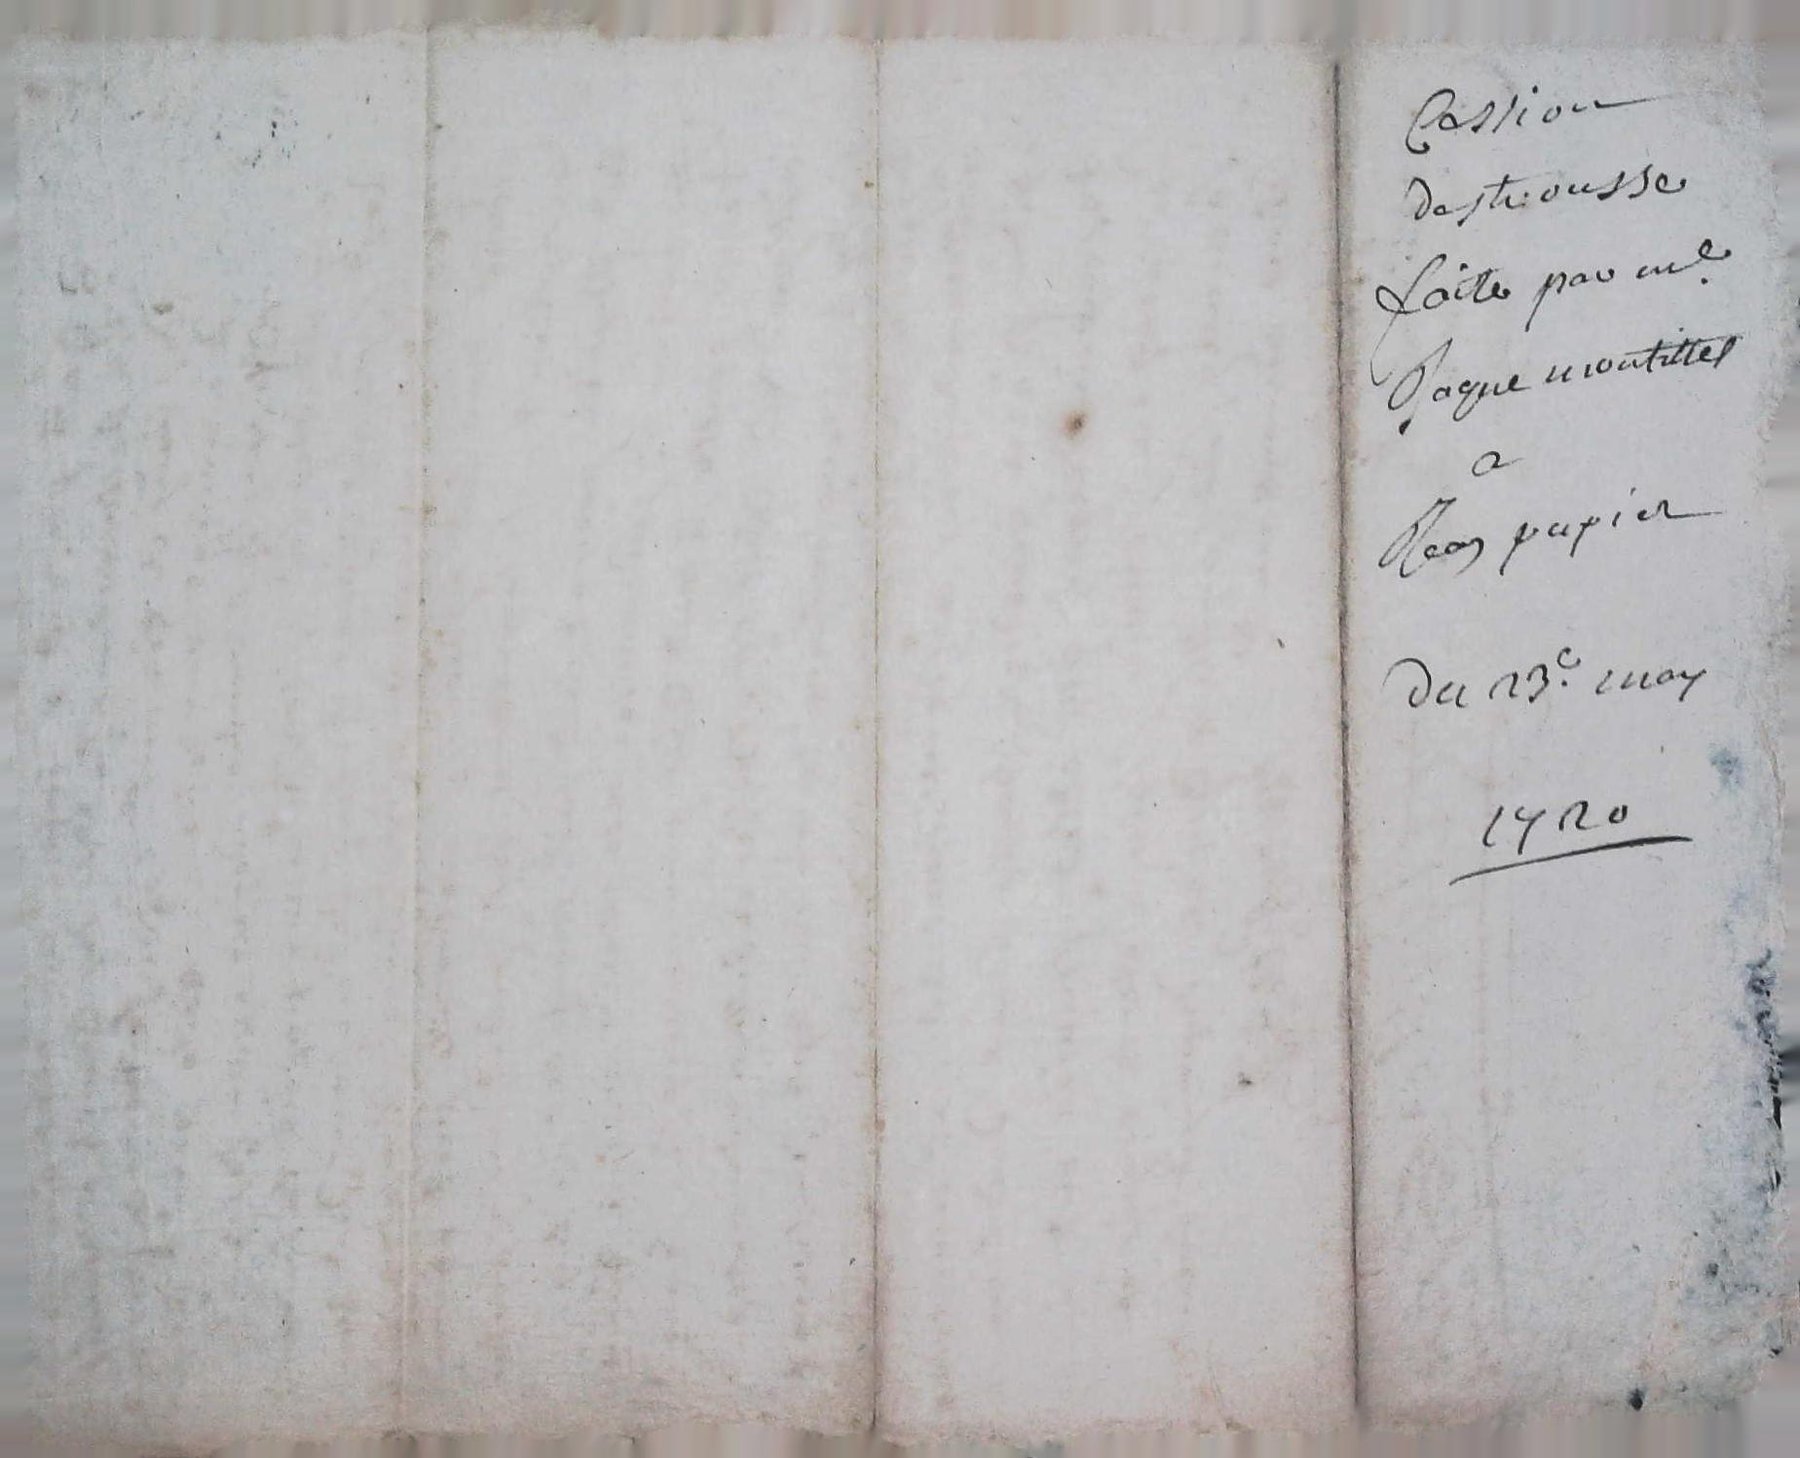 Cession
destrousse
faite par me.
Paque montittel
a
Jean papier
du 23e. may
1720